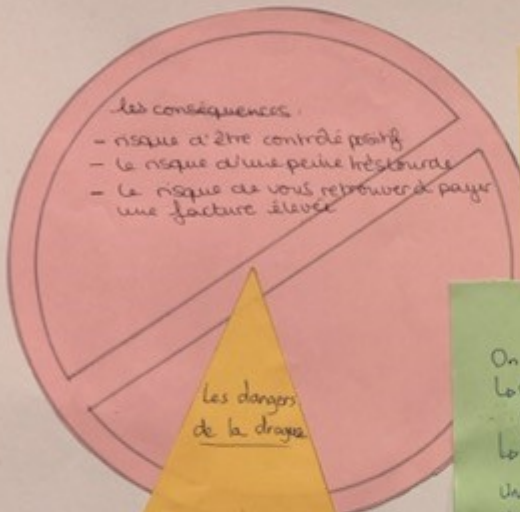 les conséquences.
- risque d'être contrôlé positif
- le risque d'une peine très lourde
- le risque de vous retrouver à payer
une facture élevée
Les dangers
de la drogue
On